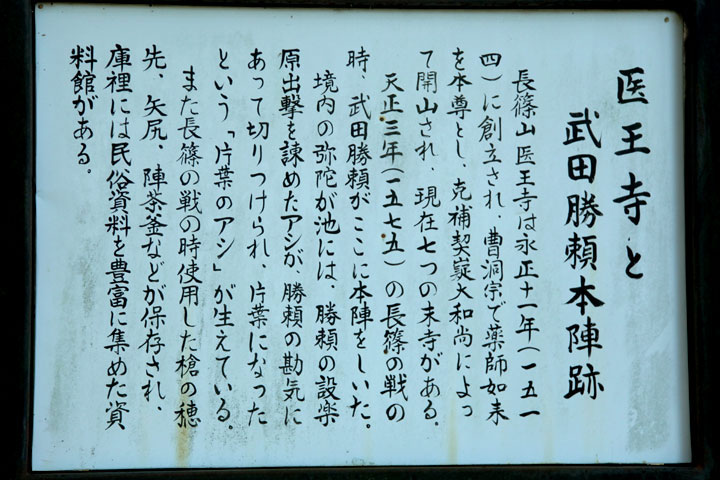 医王寺と
武田勝頼本陣跡
長篠山 医王寺は永正十一年(一五一
四)に創立され、曹洞宗で薬師如来
を本尊とし、克補契嶷大和尚によっ
て開山され、現在七つの末寺がある。
天正三年(一五七五)の長篠の戦の
時、武田勝頼がここに本陣をしいた。
境内の弥陀が池には、勝頼の設楽
原出撃を諫めたアシが、勝頼の勘気に
あって切りつけられ、片葉になった
という「片葉のアシ」が生えている。
また長篠の戦の時使用した槍の穂
先、矢尻、陣茶釜などが保存され、
庫裡には民俗資料を豊富に集めた資
料館がある。